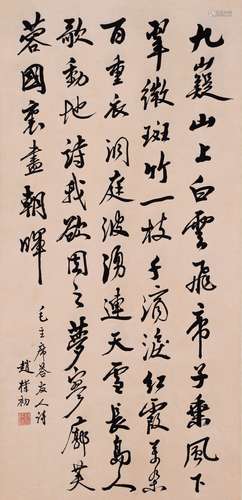 九嶷山上白雲飛帝子乘風下
翠微斑竹一枝千滴淚紅霞萬朵
百重衣洞庭波湧連天雪長島人
歌動地詩我欲因之夢寥廓芙
蓉國裏盡朝暉
毛主席答友人詩
趙樸初